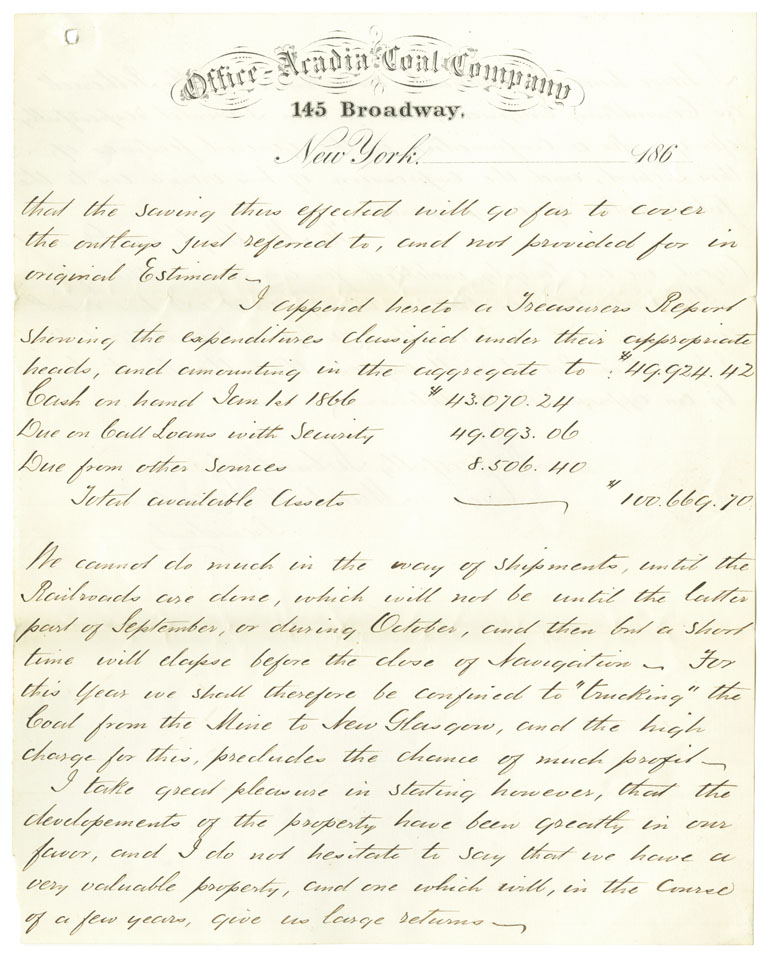 Office - Acadia Coal Company
145 Broadway,
New York. 186
that the saving thus effected will go far to cover
the outlays just referred to, and not provided for in
original Estimate -
I append hereto a Treasurers Report
showing the expenditures classified under their appropriate
heads, and amounting in the aggregate to : $49.924.42
Cash on hand Jan 1st 1866 $43.070.24
Due on Call Loans with Security 49.093.06
Due from other sources 8.506.40
Total available Assets $100.669.70
We cannot do much in the way of shipments, until the
Railroads are done, which will not be until the latter
part of September, or during October, and then but a short
time will elapse before the close of Navigation - For
this Year we shall therefore be confined to "trucking" the
Coal from the Mine to New Glasgow, and the high
charge for this, precludes the chance of much profit -
I take great pleasure in stating however, that the
developements of the property have been greatly in our
favor, and I do not hesitate to say that we have a
very valuable property, and one which will, in the Course
of a few years, give us large returns -